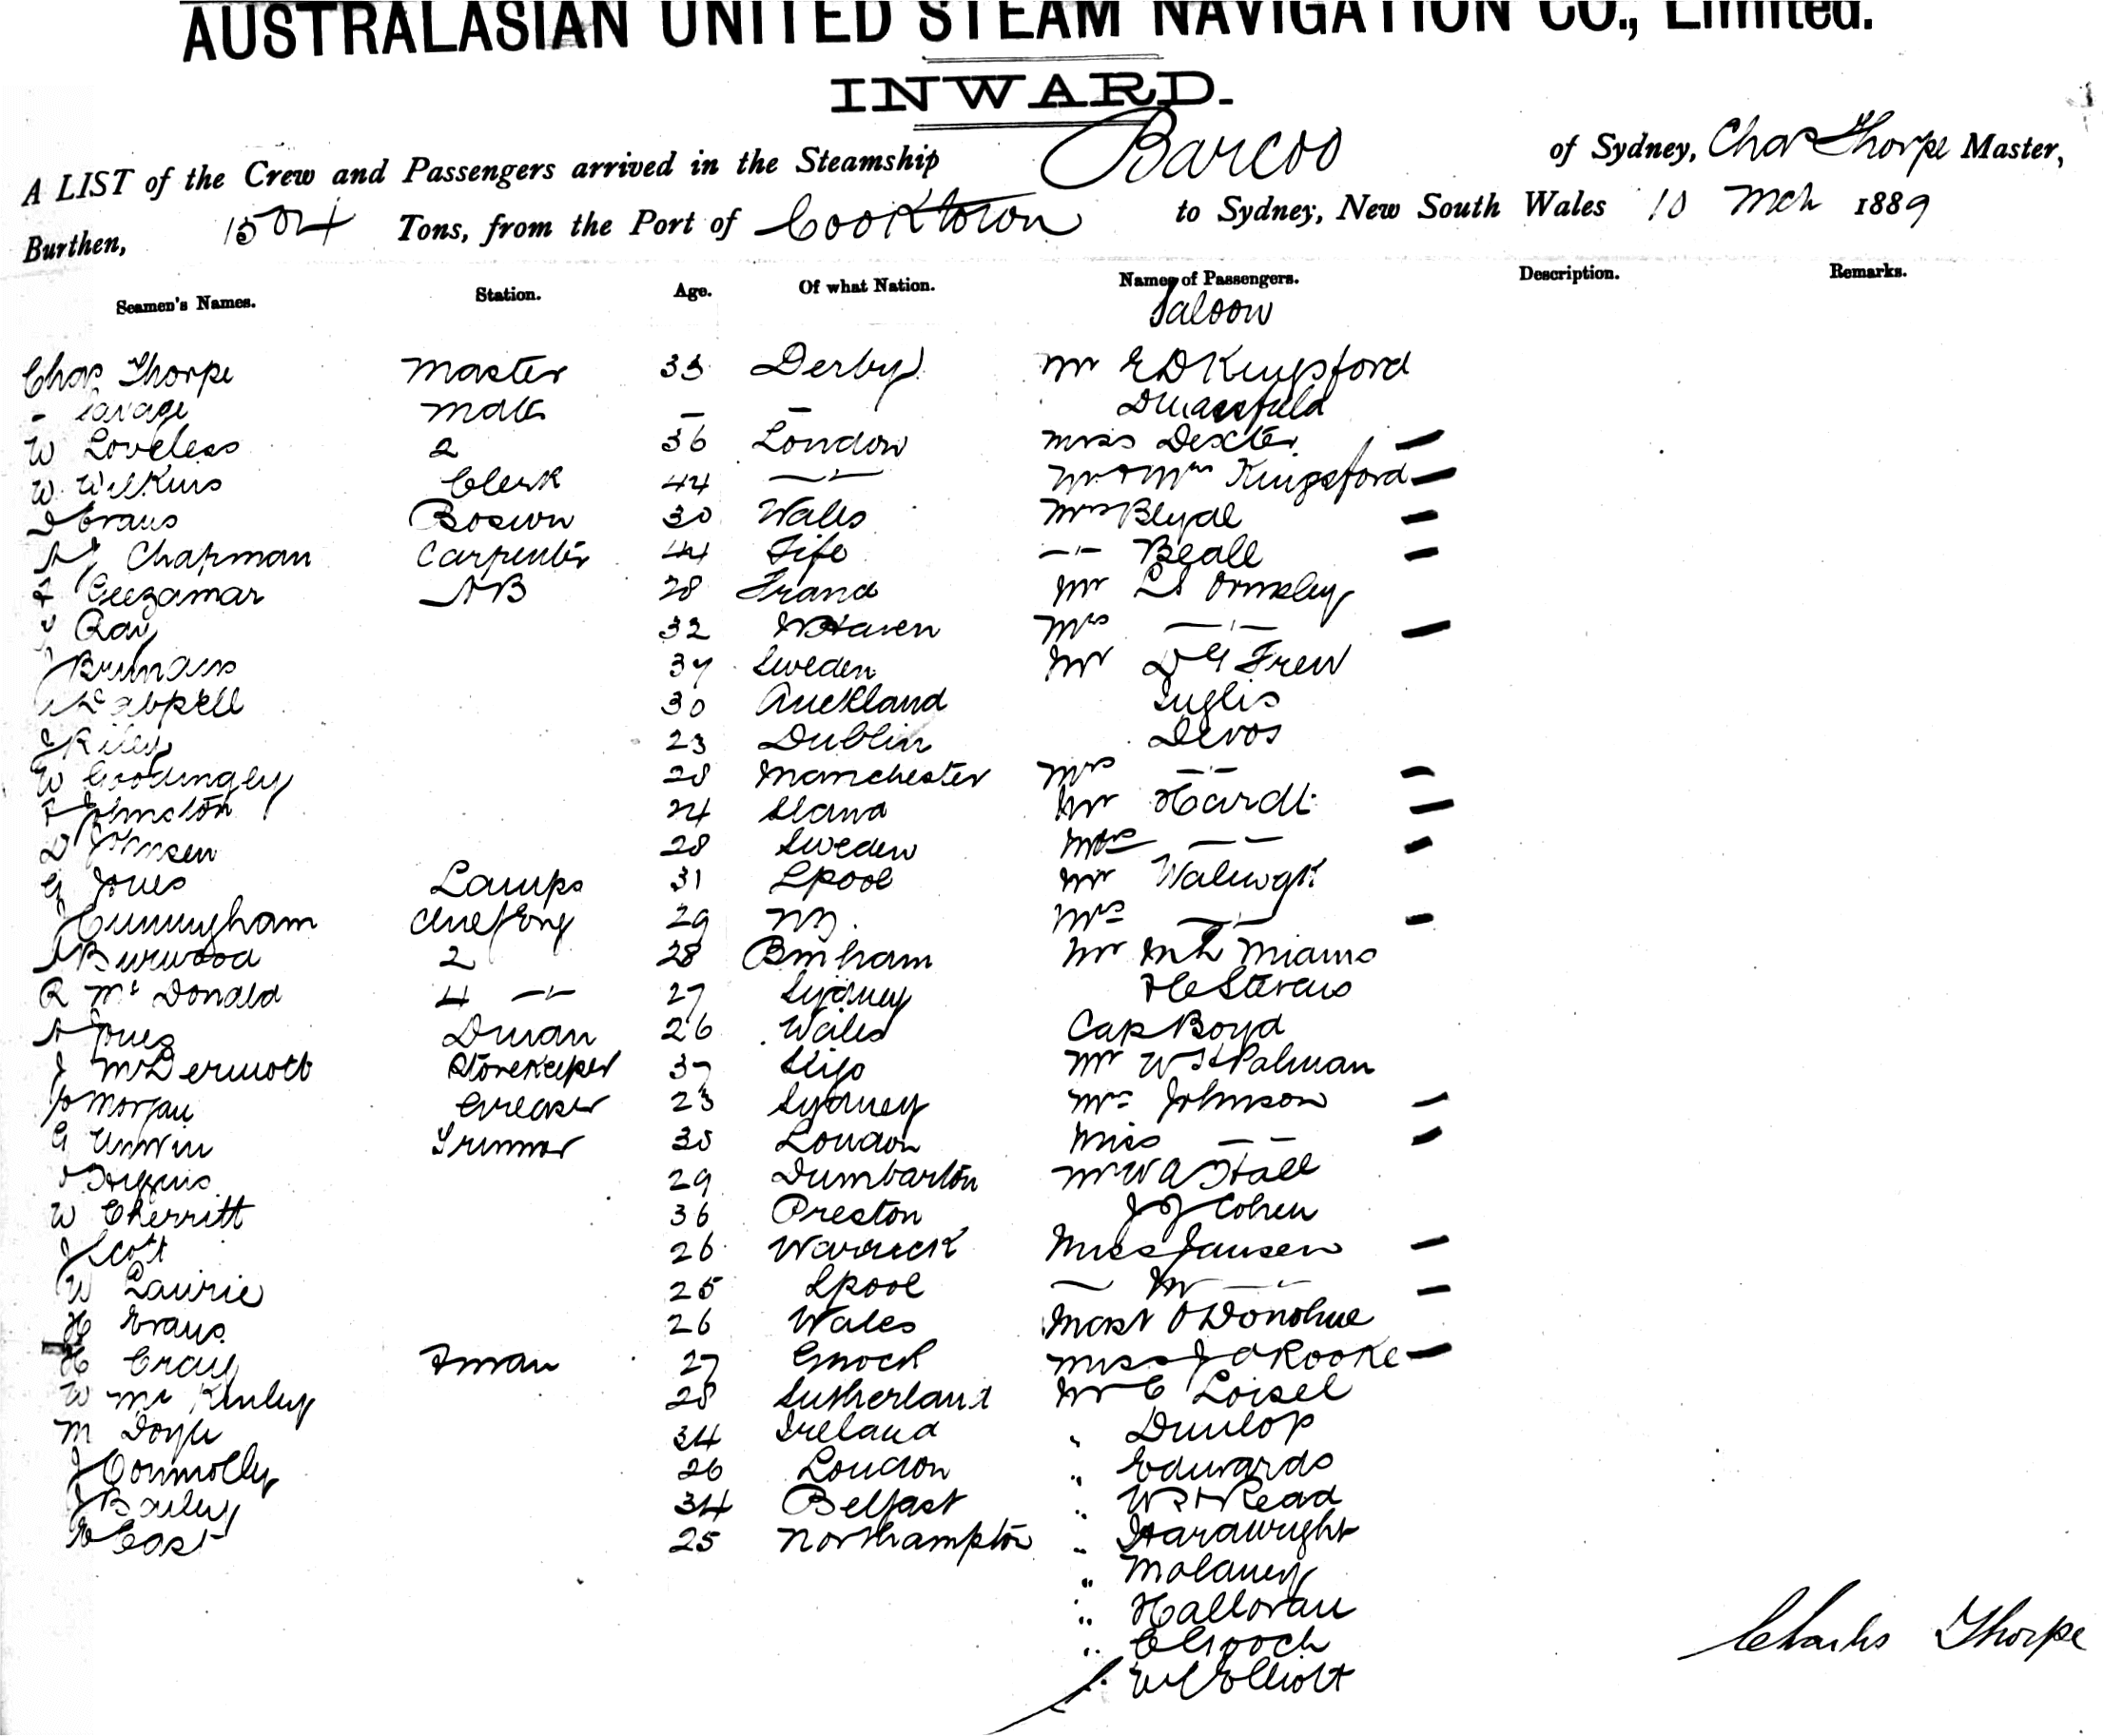 AUSTRALASIAN UNITED STEAM NAVIGATION CO., Limited.
INWARD.
A LIST of the Crew and Passengers arrived in the Steamship Barcoo of Sydney, Chas Thorpe Master,
Burthen, 1504 Tons, from the Port of Cooktown to Sydney, New South Wales 10 Mch 1889
Seamen's Names. Station. Age. Of what Nation. Names of Passengers. Description. Remarks.
Saloon
Chas Thorpe Master 33 Derby Mr E D Kingsford
- Savage Mate - -
W Loveless 2 36 London Miss Dexter —
W Wilkins Clerk 44 —"— Mr & Mrs Kingsford —
D Evans Bosun 30 Wales Mrs —
Chapman Carpenter 44 Fife —"— Beale —
Geezamar AB 28 Mr Ormsby
Ray 32 Mrs —"— —
37 Sweden Mr Frew
30 Auckland Inglis
J Riley 23 Dublin Devos
W Goodingley 28 Manchester Mrs —"— —
Johnston 24 Mr Hardt —
D Johnsen 28 Sweden Mrs —"— —
G Jones Lamps 31 Lpool Mr
J Cunningham Chief Eng 29 Mrs —"— —
A Burwood 2 28 Mr
R McDonald 4 —"— 27 Sydney H C Stevens
A Jones Dman 26 Wales Cap Boyd
J McDermott Storekeeper 37 Sligo Mr W H Palman
Morgan Greaser 23 Sydney Mrs Johnson —
G Unwin Trimmer 30 London Miss —"— —
29 Dumbarton Mr W A Hall
W Cherritt 36 Preston J J Cohen
J Scott 26 Warwick Miss Jansen —
W Laurie 25 Lpool — M —"— —
H Evans 26 Wales Mast O'Donohue
H Craig Fman 27 Gnock Miss J A Rooke —
W McKinley 28 Sutherland Mr C Loisel
M Doyle 34 Ireland " Dunlop
J Connolly 26 London " Edwards
J Bailey 34 Belfast " W H Read
E East 25 Northampton "
" Molaney
" Halloran
" C Gooch
Elliott
Charles Thorpe